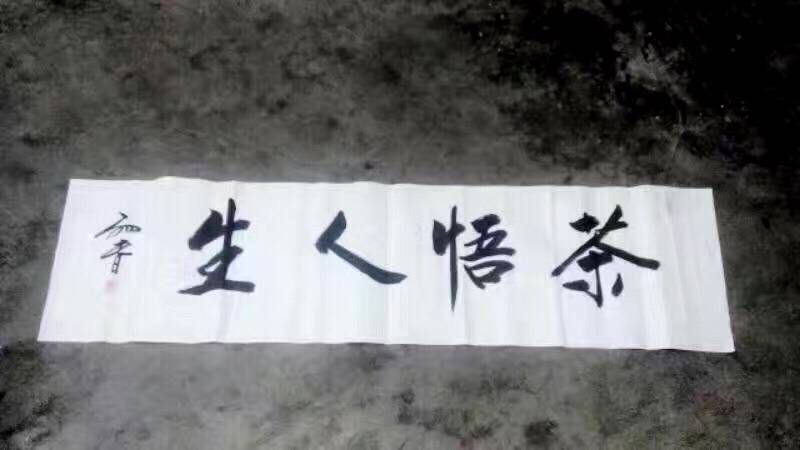 茶悟人生